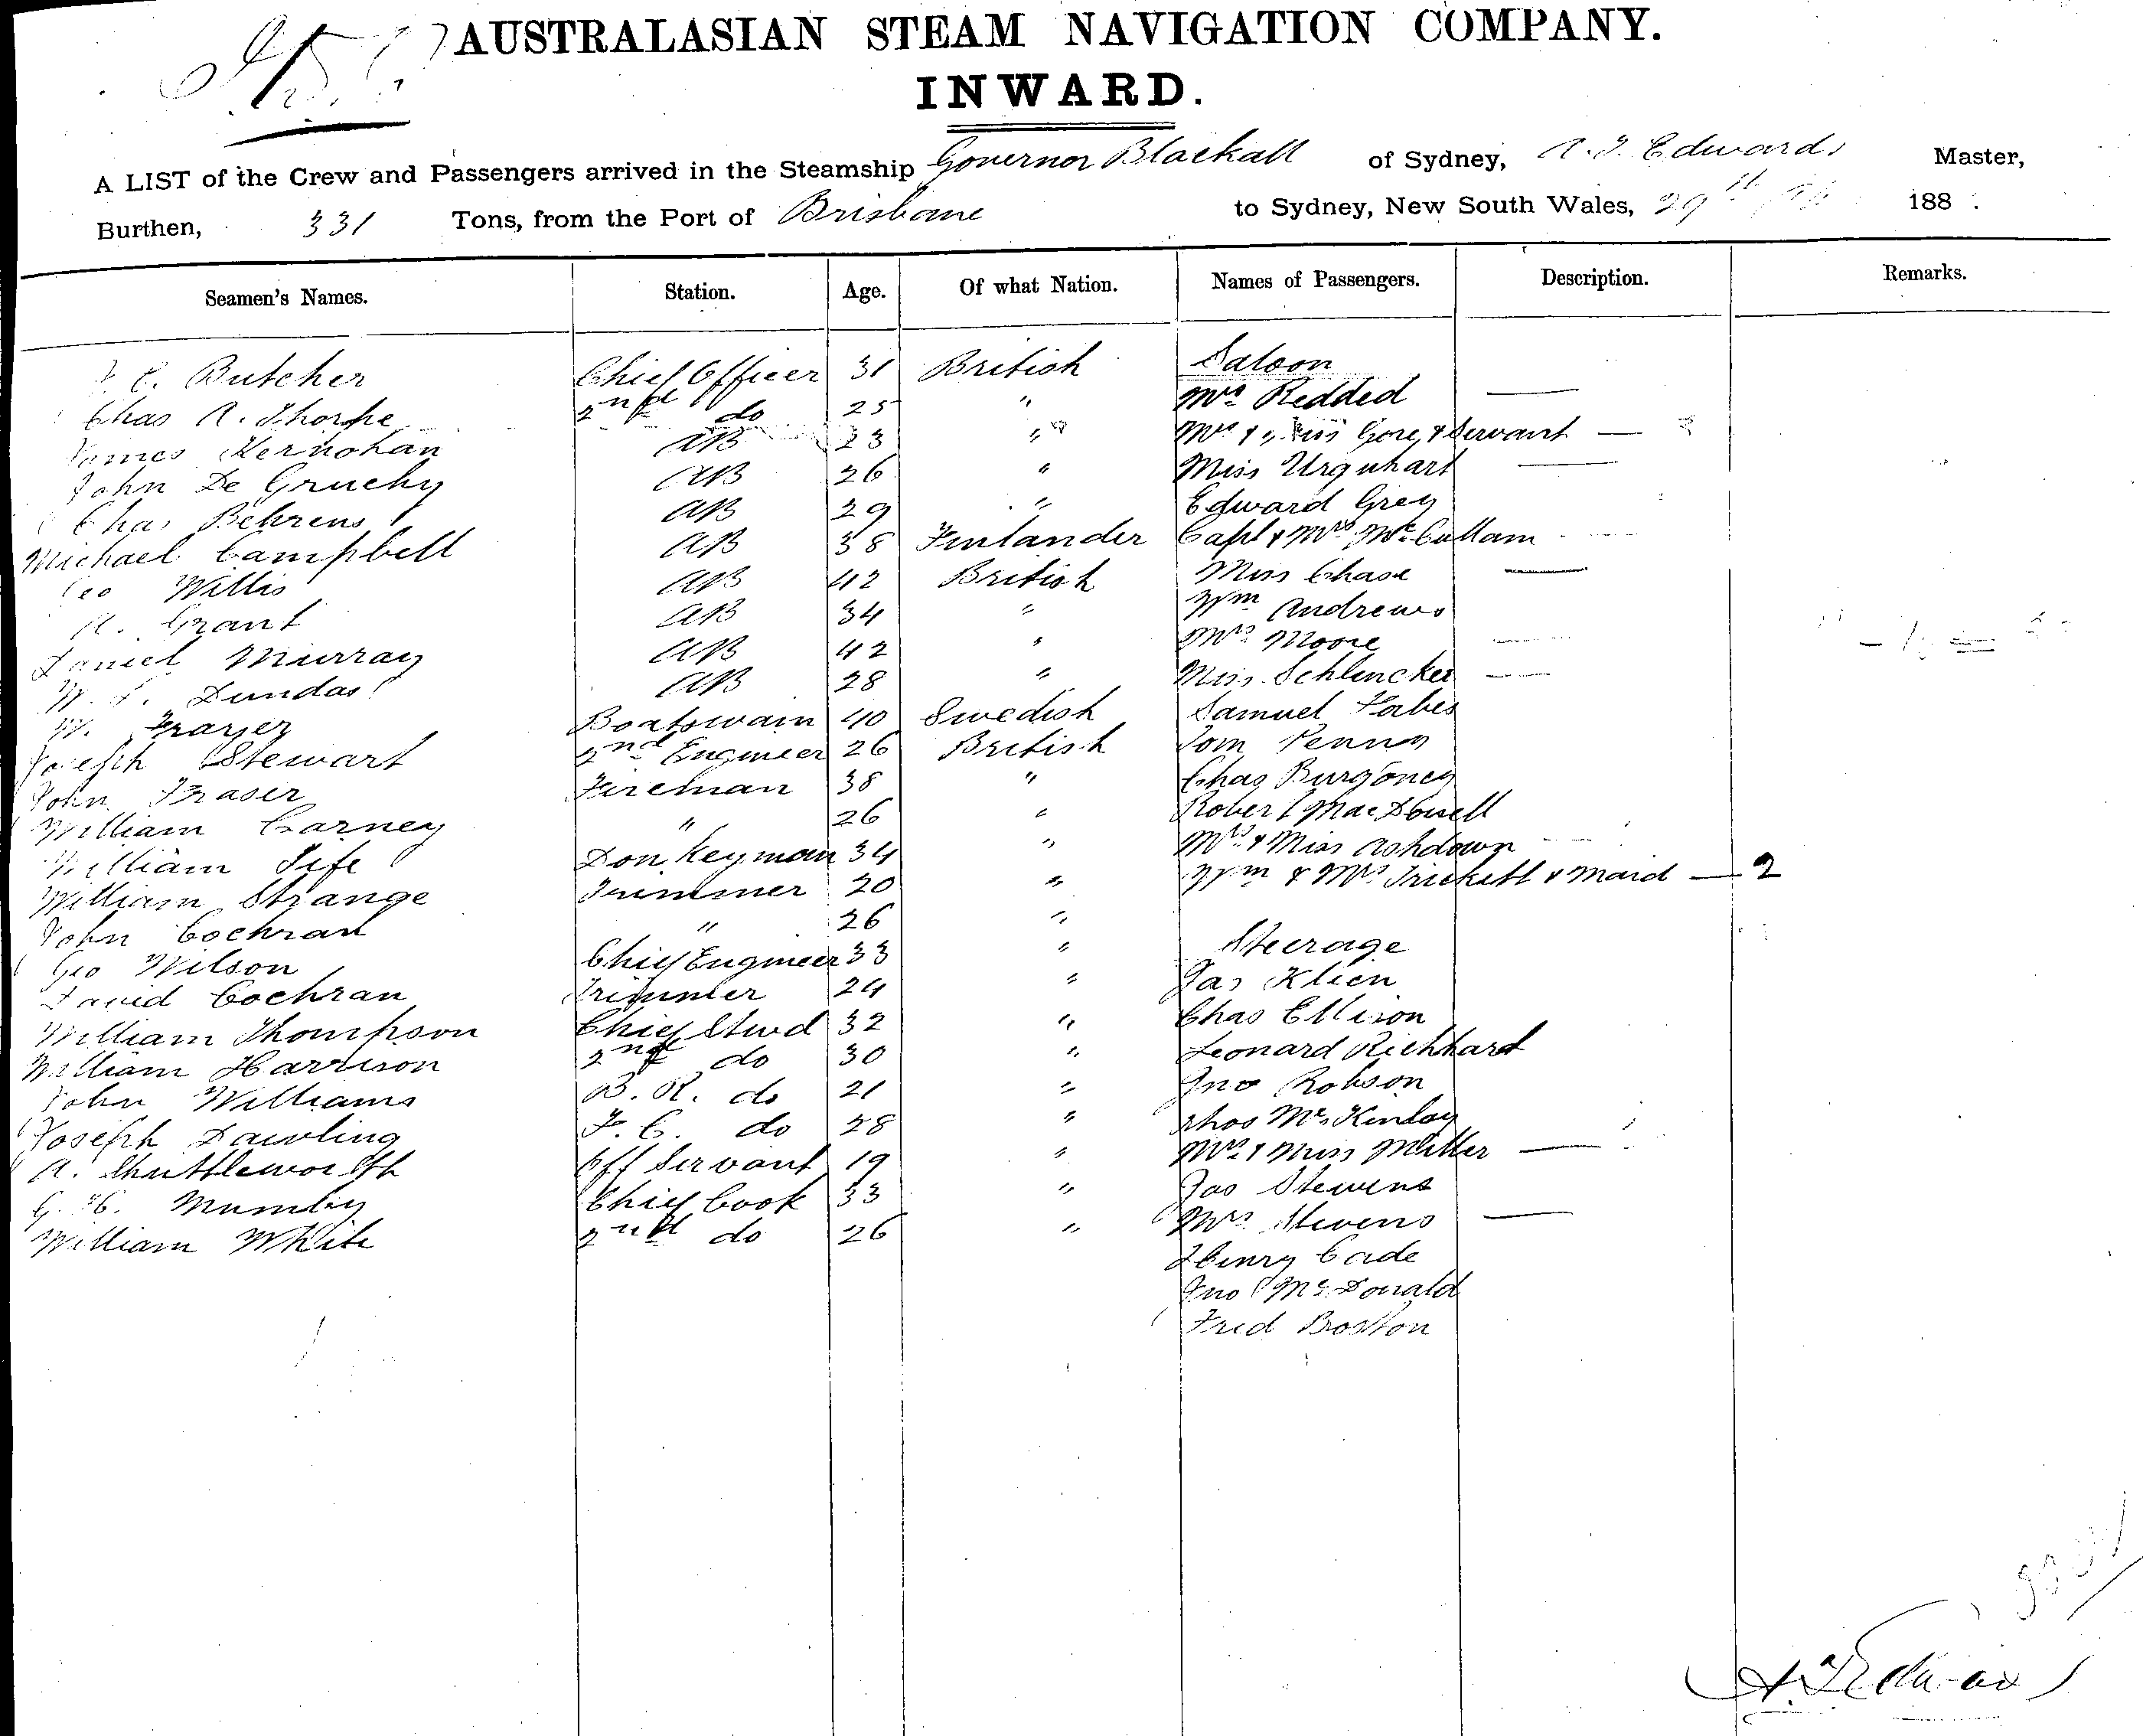 AUSTRALASIAN STEAM NAVIGATION COMPANY.
INWARD.
A LIST of the Crew and Passengers arrived in the Steamship Governor Blackall of Sydney, A. J. Edwards Master,
Burthen, 331 Tons, from the Port of Brisbane to Sydney, New South Wales, 29th 188
Seamen's Names. Station. Age. Of what Nation. Names of Passengers. Description. Remarks.
C. Butcher Chief Officer 31 British Saloon
Chas A. Thorpe 2nd do 25 " Mrs Redded —
James Kernohan AB 23 " Mr & Miss Gore & Servant —
John De Gruchy AB 26 " Miss Urquhart —
Chas Behrens AB 29 " Edward Grey
Michael Campbell AB 38 Finlander Capt & Mrs McCallam
Geo Willis AB 42 British Miss Chase —
A. Grant AB 34 " Wm Andrews
Daniel Murray AB 42 " Mrs Moore —
W. Dundas AB 28 " Miss Schlencker —
W. Frayer Boatswain 40 Swedish Samuel Forbes
Joseph Stewart 2nd Engineer 26 British Tom Penny
John Fraser Fireman 38 " Chas Burgoney
William Carney " 26 " Robert MacDowell
William Fife Donkeyman 34 " Mrs & Miss Ashdown
William Strange Trimmer 20 " Wm & Mrs Trickett & Maid — 2
John Cochran " 26 "
Geo Wilson Chief Engineer 33 " Steerage
David Cochran Trimmer 24 " Jas Klien
William Thompson Chief Stwd 32 " Chas Ellison
William Harrison 2nd do 30 " Leonard Richhard
John Williams B. R. do 21 " Jno Robson
Joseph Dawling F. C. do 28 " Thos McKinlay
A. Shuttleworth Off Servant 19 " Mrs & Miss Miller —
G. Mumby Chief Cook 33 " Jas Stevens
William White 2nd do 26 " Mrs Stevens —
Henry Cade
Jno McDonald
Fred Boston
A J Edwards